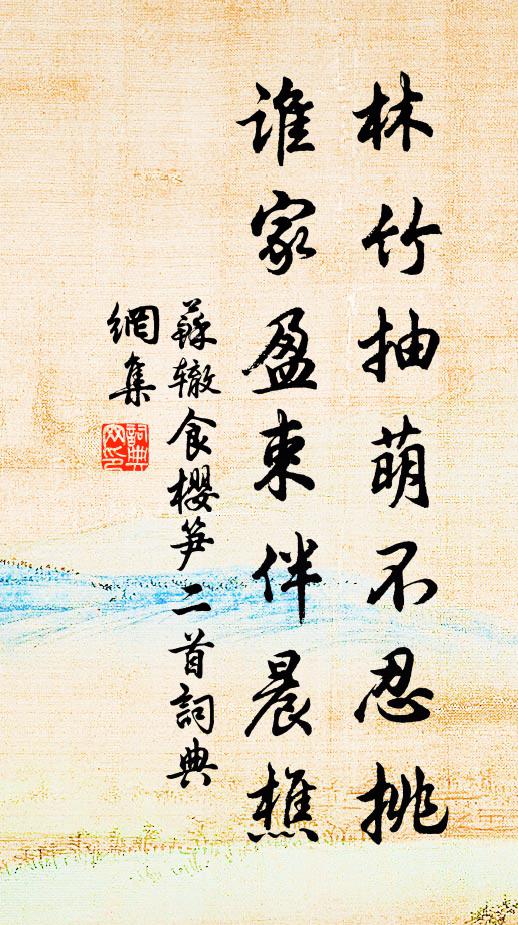 林竹抽萌不忍挑
谁家盈束伴晨樵
蘇辙食櫻笋二首詞典
網集
詞典